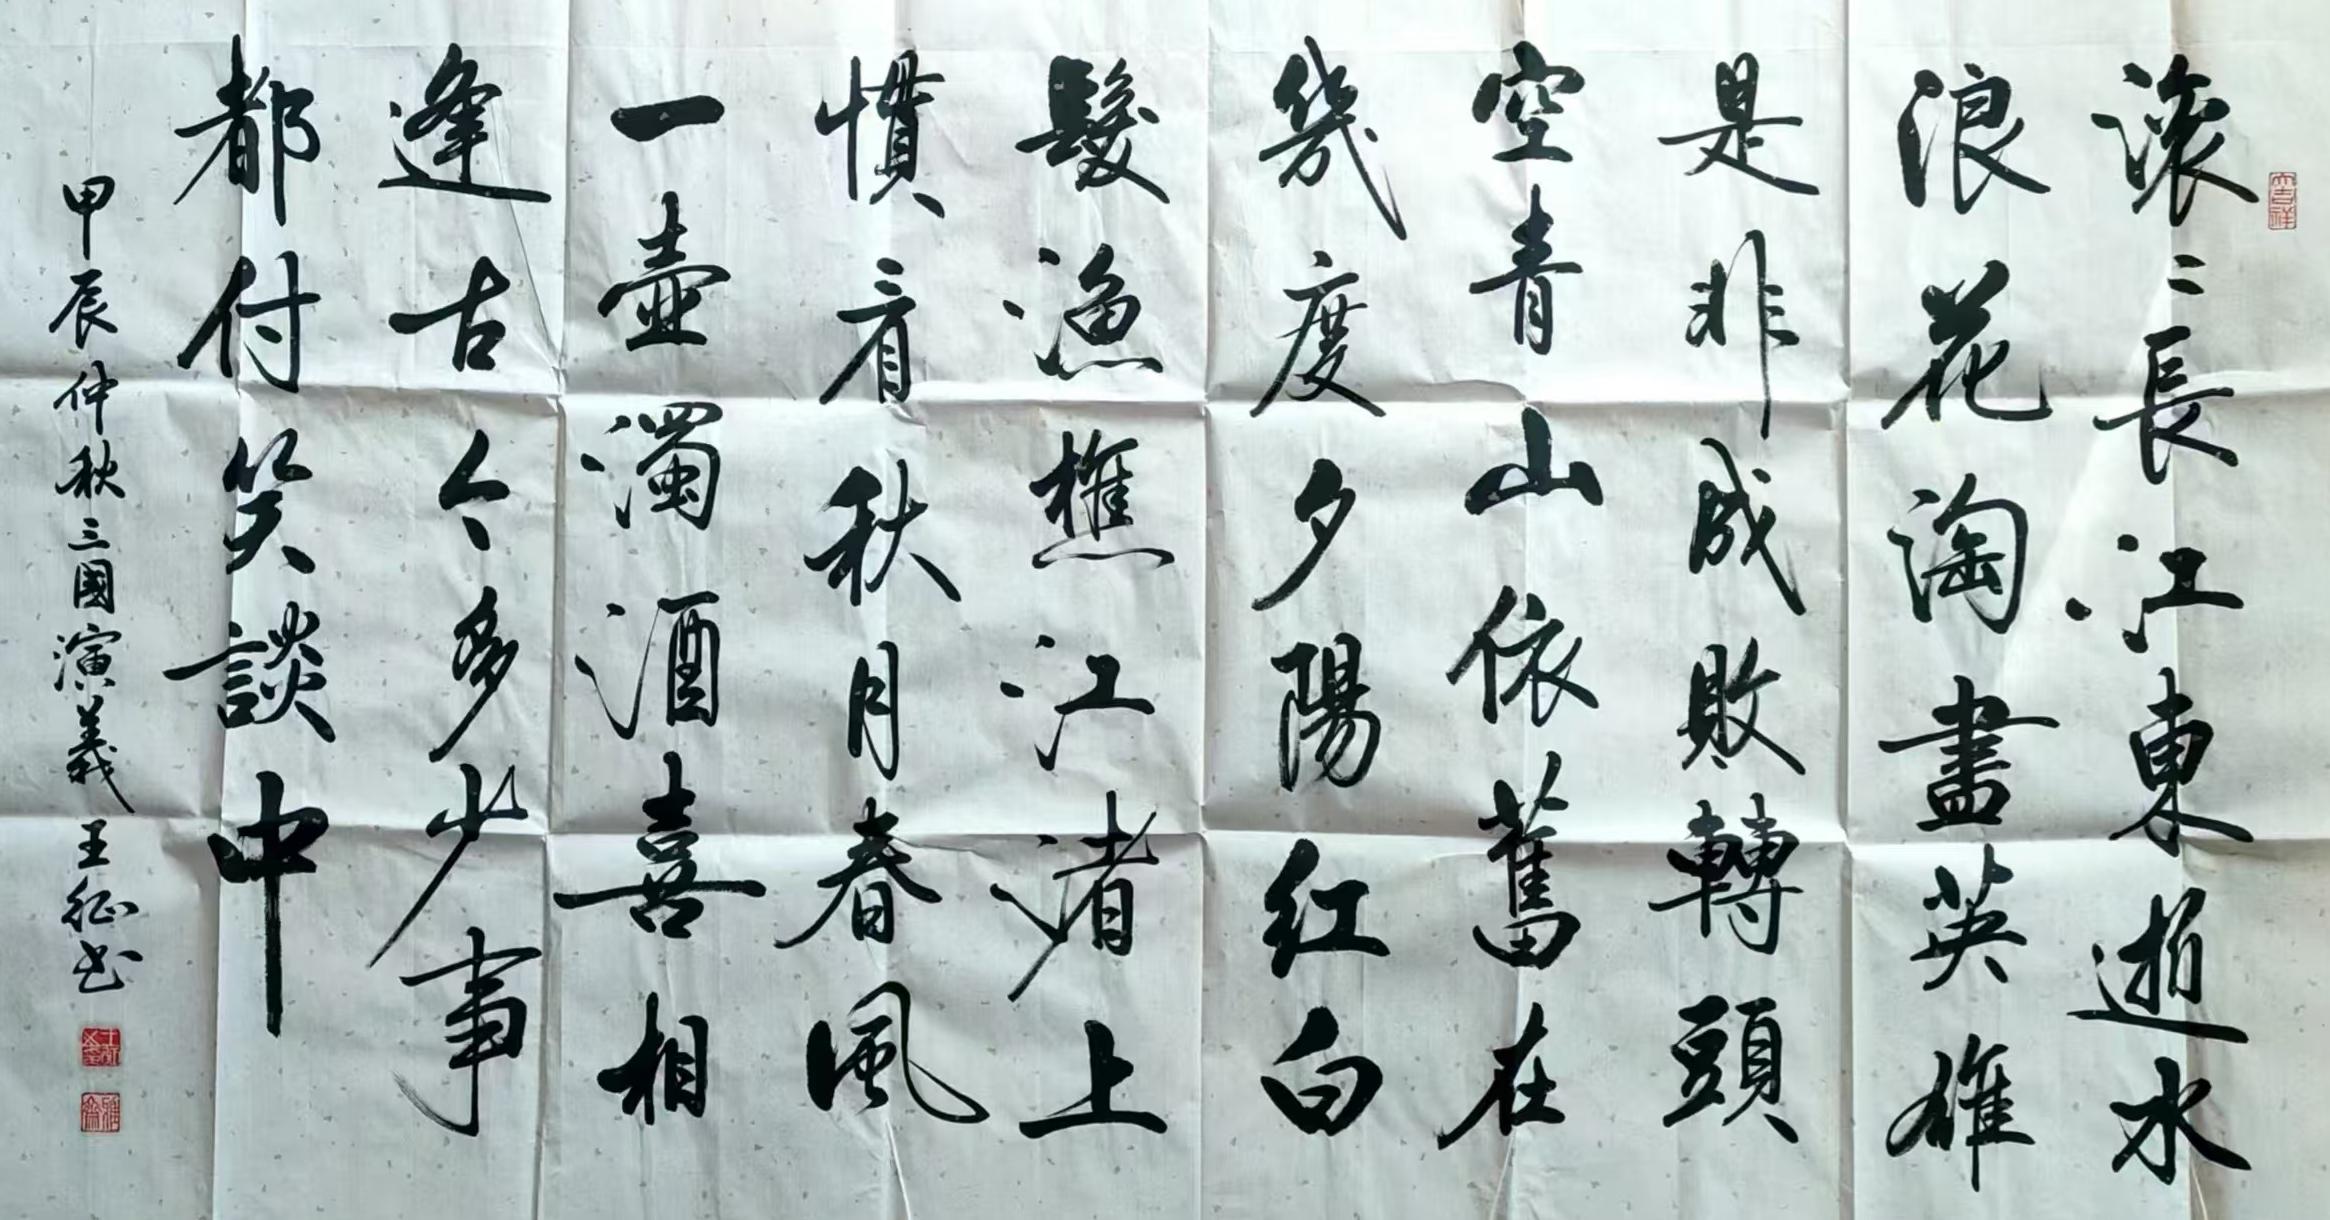 滚〻長江東逝水
浪花淘盡英雄
是非成敗轉頭
空青山依舊在
幾度夕陽红白
髮漁樵江渚上
慣看秋月春風
一壺濁酒喜相
逢古今多少事
都付笑談中
甲辰仲秋三國演義王征书